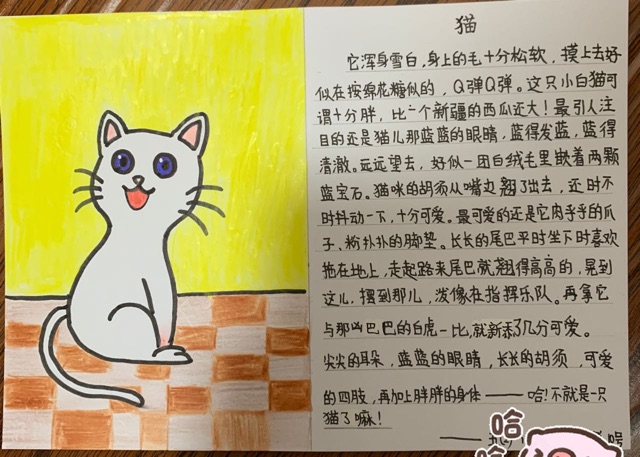 猫
它浑身雪白,身上的毛十分松软,摸上去好
似在按绵花糖似的,Q弹Q弹。这只小白猫可
谓十分胖,比一个新疆的西瓜还大!最引人注
目的还是猫儿那蓝蓝的眼睛,蓝得发蓝,蓝得
清澈。远远望去,好似一团白绒毛里嵌着两颗
蓝宝石。猫咪的胡须从嘴边翘了出去,还时不
时抖动一下,十分可爱。最可爱的还是它肉乎乎的爪
子、粉扑扑的脚垫。长长的尾巴平时坐下时喜欢
拖在地上,走起路来尾巴就翘得高高的,晃到
这儿,摆到那儿,活像在指挥乐队。再拿它
与那凶巴巴的白虎一比,就新添了几分可爱。
尖尖的耳朵,蓝蓝的眼睛,长长的胡须,可爱
的四肢,再加上胖胖的身体——哈!不就是一只
猫了嘛!
哈
哈